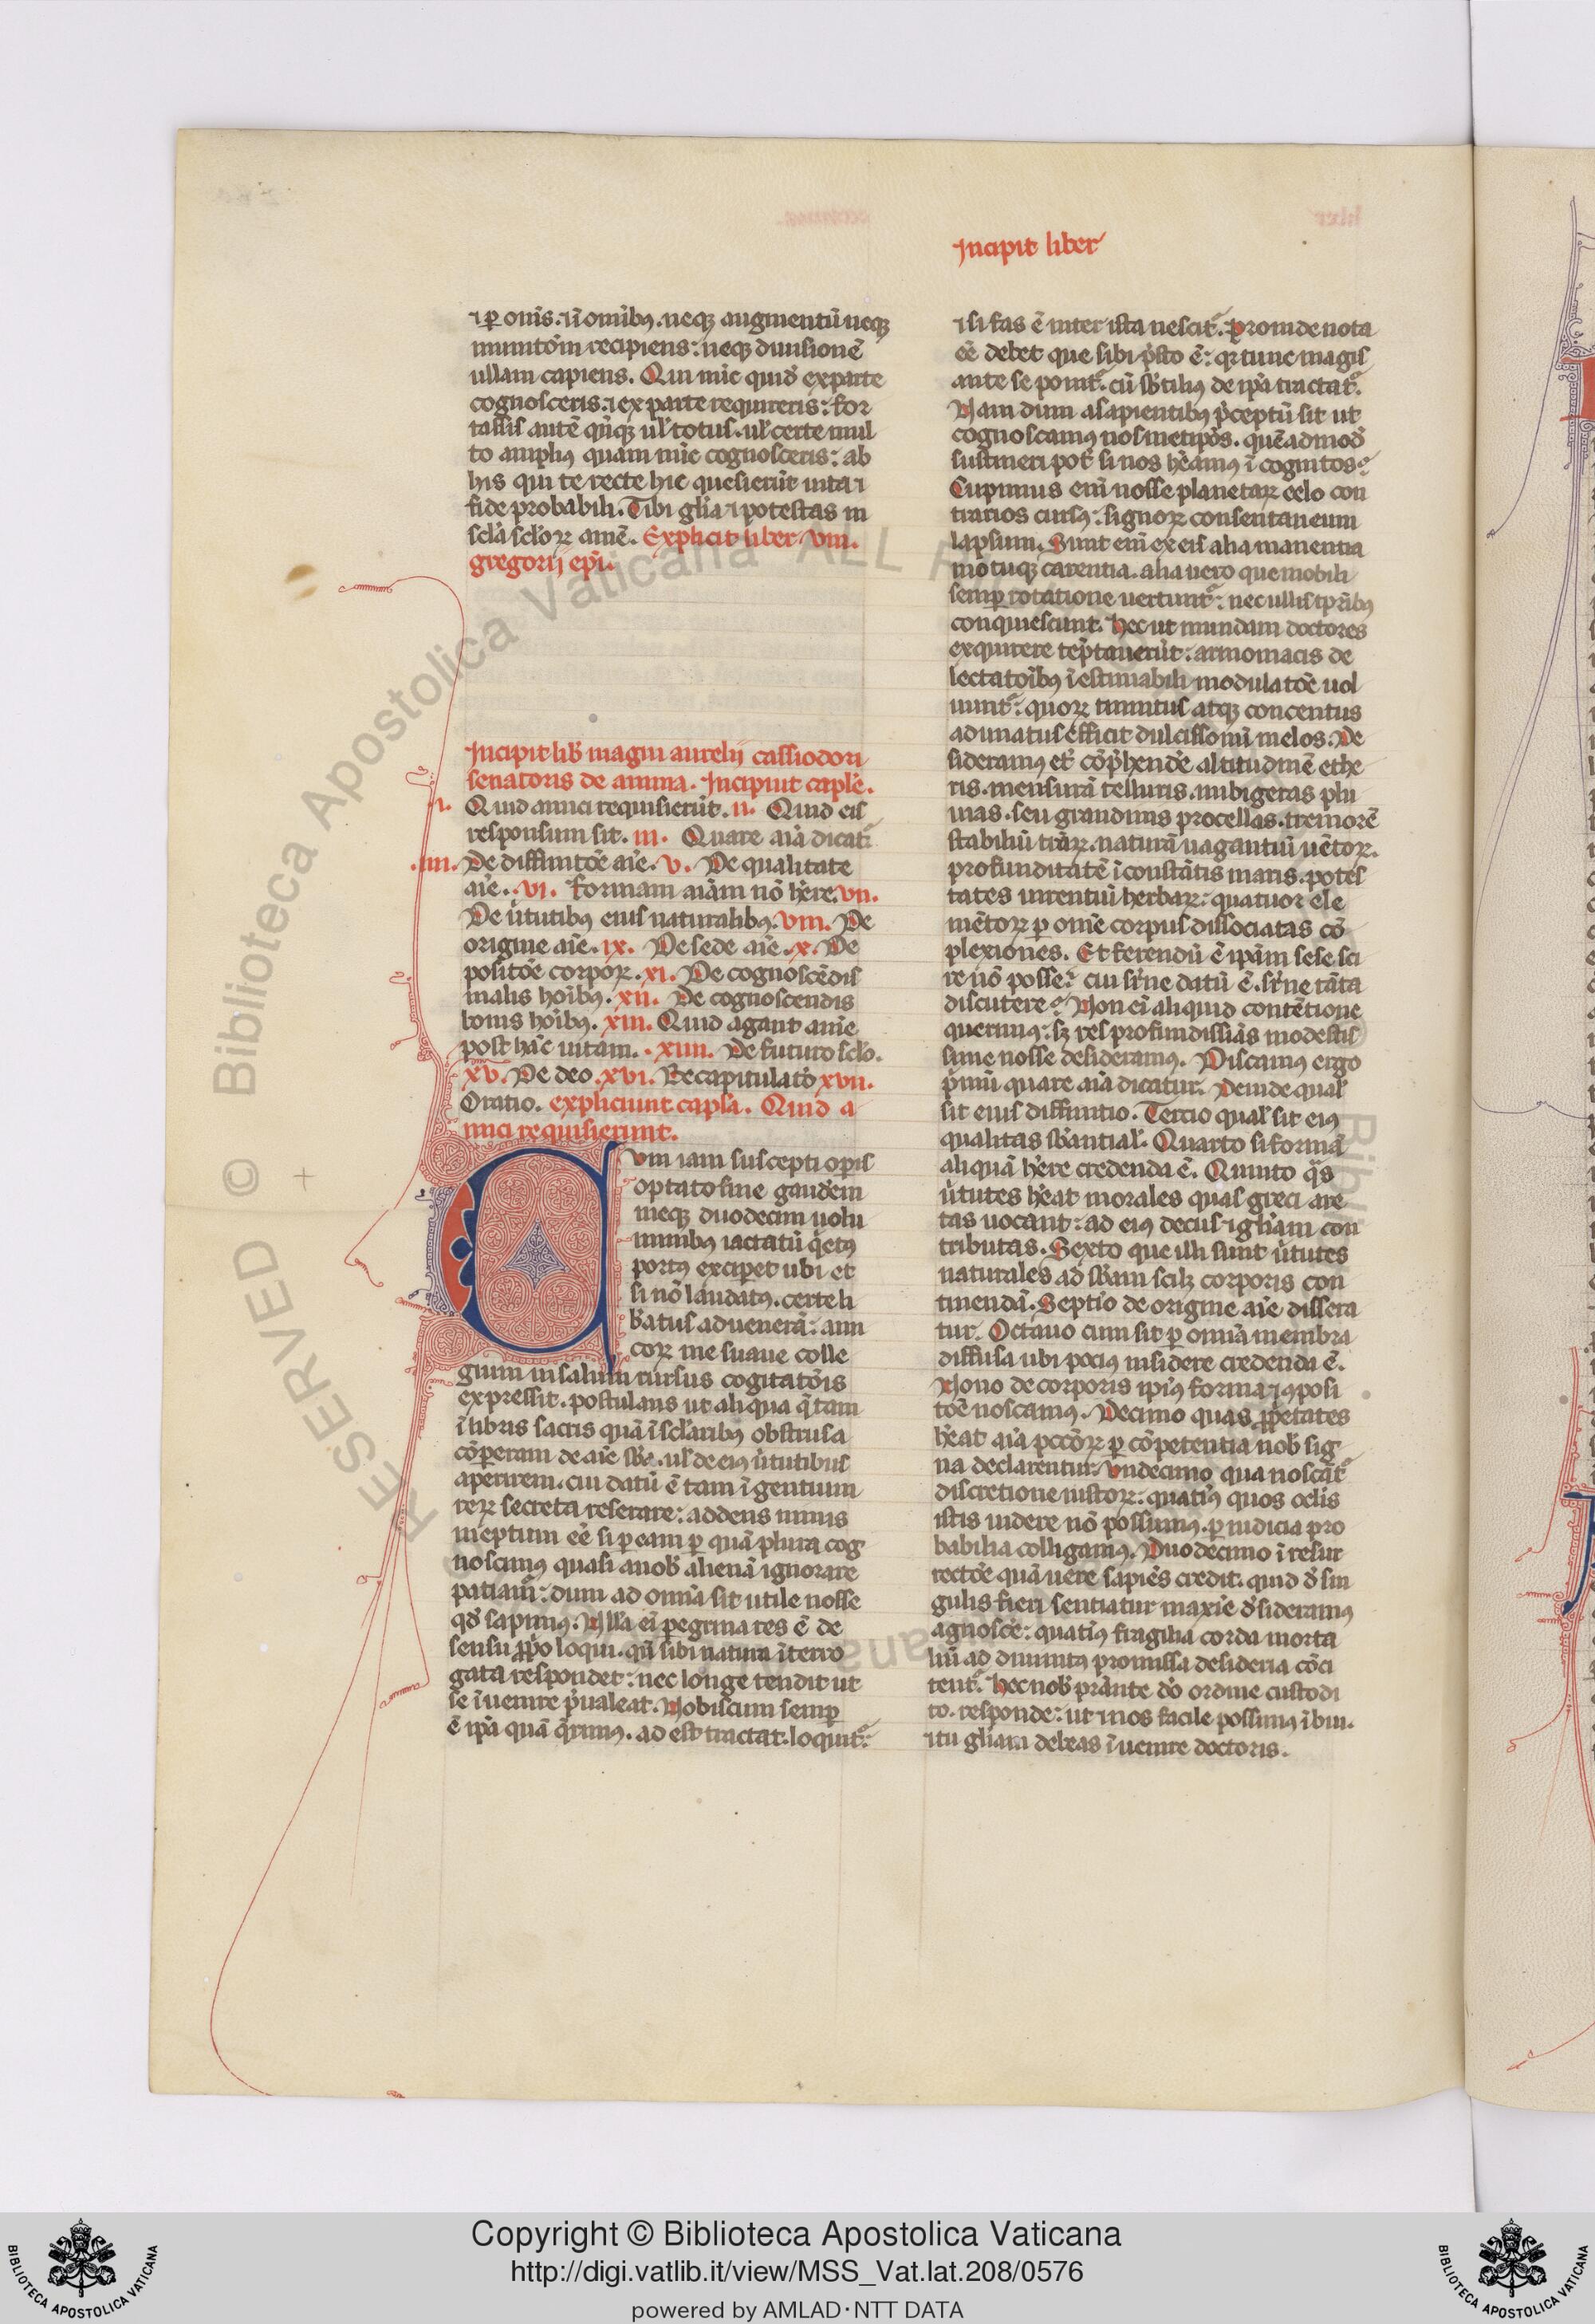 Incipit liber
⁊ ꝑ oīns. ⁊ ī omībꝰ. neqꝫ augmentū neqꝫ
minutōem recipiens: neqꝫ diuisionē
ullam capiens. Qui nūc quidē ex parte
cognosceris. ⁊ ex parte requireris: for
tassis autē qn̄qꝫ ul' totus. ul' certe mul
to amplius quam nūc cognosceris: ab
his qui te recte hic quesierūt uita ⁊
fide probabili. Tibi gl'ia ⁊ potestas in
scl'a scl'oꝝ amē. Explicit liber viii.
gregorij ep̄i.
Incipit lib' magni aurelij cassiodori
senatoris de anima. Incipiūt capl'e.
.i. Quid amici requisierūt. ii. Quid eis
responsum sit. iii. Quare aīa dicat᷑
.iiii. De diffinitōe aīe. v. De qualitate
aīe. vi. Formam aīam nō hēre. vii.
De ūtutibꝰ eius naturalibꝰ. viii. De
origine aīe. ix. De sede aīe. x. De
positōe corpoꝝ. xi. De cognoscēdis
malis hoībꝰ. xii. De cognoscendis
bonis hoībꝰ. xiii. Quid agant anīe
post hāc uitam. xiiii. De futuro scl'o.
xv. De deo. xvi. Recapitulatō xvii.
Oratio. expliciunt capl'a. Quid a
mici requisierunt.
Cvm iam suscepti opis
optato fine gaudem
meqꝫ duodecim uolu
minibꝰ iactatū qⁱetꝰ
portꝰ exciperet ubi et
si nō laudatꝰ. certe li
b'atus aduenerā: ami
coꝝ me suaue colle
gium in salum rursus cogitatōis
expressit. postulans ut aliqua q̄ tam
ī libris sacris quā ī scl'aribꝰ obstrusa
cōperam de aīe sb'a. ul' de eiꝰ ūtutibus
aperirem. cui datū ē tam īgentium
reꝝ secreta reserare: addens nimis
ineptum eē si ꝑ eam ꝑ quā plura cog
noscimꝰ quasi a nob' alienā ignorare
patiam᷑: dum ad omīa sit utile nosse
qd' sapimꝰ. Nll'a eī pegrina res ē de
sensu ꝓpo loqui. qn̄ sibi natura īterro
gata respondet: nec longe tendit ut
se īuenire p̄ualeat. Nobiscum semꝑ
ē ip̄a quā q̄rimꝰ. adest tractat. loquit᷑:
⁊ si fas ē inter ista nescit᷑. Proinde nota
eē debet que sibi p̄sto ē: qꝛ tunc magis
ante se ponit᷑. cū sb'tiliꝰ de ip̄a tractat᷑.
Nam dum a sapientibꝰ p̄ceptū sit ut
cognoscamꝰ nosmetip̄os. quēadmod'
sustineri pot̄ si nos hēamꝰ īcognitos?
Cupimus enī nosse planetaꝝ celo con
trarios cursꝰ: signoꝝ consentaneum
lapsum. Sunt enī ex eis alia manentia
motuqꝫ carentia. alia uero que mobili
semꝑ rotatione uertunt᷑: nec ullis tp̄ribꝰ
conquiescunt. Hec ut mundam doctores
exquirere tēptauerūt: armoniacis de
lectatōibꝰ īestimabili modulatōe uol
uunt᷑: quoꝝ tinnitus atqꝫ concentus
adunatus efficit dulcissonū melos. De
sideramꝰ et cōp̄hendē altitudinē ethe
ris. mensurā telluris. nubigeras plu
uias. seu grandinis procellas. tremorē
stabiliū traꝝ. naturā uagantiū uētoꝝ.
profunditatē īconstātis maris. potes
tates uirentiū herbaꝝ: quatuor ele
mētoꝝ ꝑ omīe corpus dissociatas cō
plexiones. Et ferendū ē ip̄am sese sci
re nō posse? cui sr̄ne datū ē. sr̄ne tāta
discutere? Non eī aliquid contētione
querimꝰ: sꝫ res profundissīas modestis
sime nosse desideramꝰ. Discamꝰ ergo
p̄mū quare aīa dicatur. Deinde qual'
sit eius diffinitio. Tercio qual' sit eiꝰ
qualitas sb'antial'. Quarto si formā
aliquā hēre credenda ē. Quinto q̄s
ūtutes hēat morales quas greci are
tas uocant: ad eiꝰ decus ⁊ gl'iam con
tributas. Sexto que illi sunt ūtutes
naturales ad sb'am scilꝫ corporis con
tinendā. Septīo de origine aīe dissera
tur. Octauo cum sit ꝑ omīa membra
diffusa ubi pociꝰ insidere credenda ē.
Nono de corporis ipiꝰ forma ⁊ ꝯposi
tōe noscamꝰ. Decimo quas ꝓp̄etates
hēat aīa pctōꝝ ꝑ cōpetentia nob' sig
na declarentur. Vndecimo qua noscāt᷑
discretione iustoꝝ: quatīꝰ quos oclis
istis uidere nō possumꝰ. ꝑ iudicia pro
babilia colligamꝰ. Duodecimo ī resur
rectōe quā uere sapiēs credit. quid d' sin
gulis fieri sentiatur maxīe d'sideramꝰ
agnoscē: quatīꝰ fragilia corda morta
liū ad diuinitꝰ promissa desideria cōci
tent᷑. Hec nob' p̄rānte dō ordine custodi
to. responde: ut ⁊ nos facile possimꝰ ībui.
⁊ tu gl'iam debeas īuenire doctoris.
Copyright © Biblioteca Apostolica Vaticana
http://digi.vatlib.it/view/MSS_Vat.lat.208/0576
powered by AMLAD·NTT DATA
BIBLIOTECA APOSTOLICA VATICANA
BIBLIOTECA APOSTOLICA VATICANA